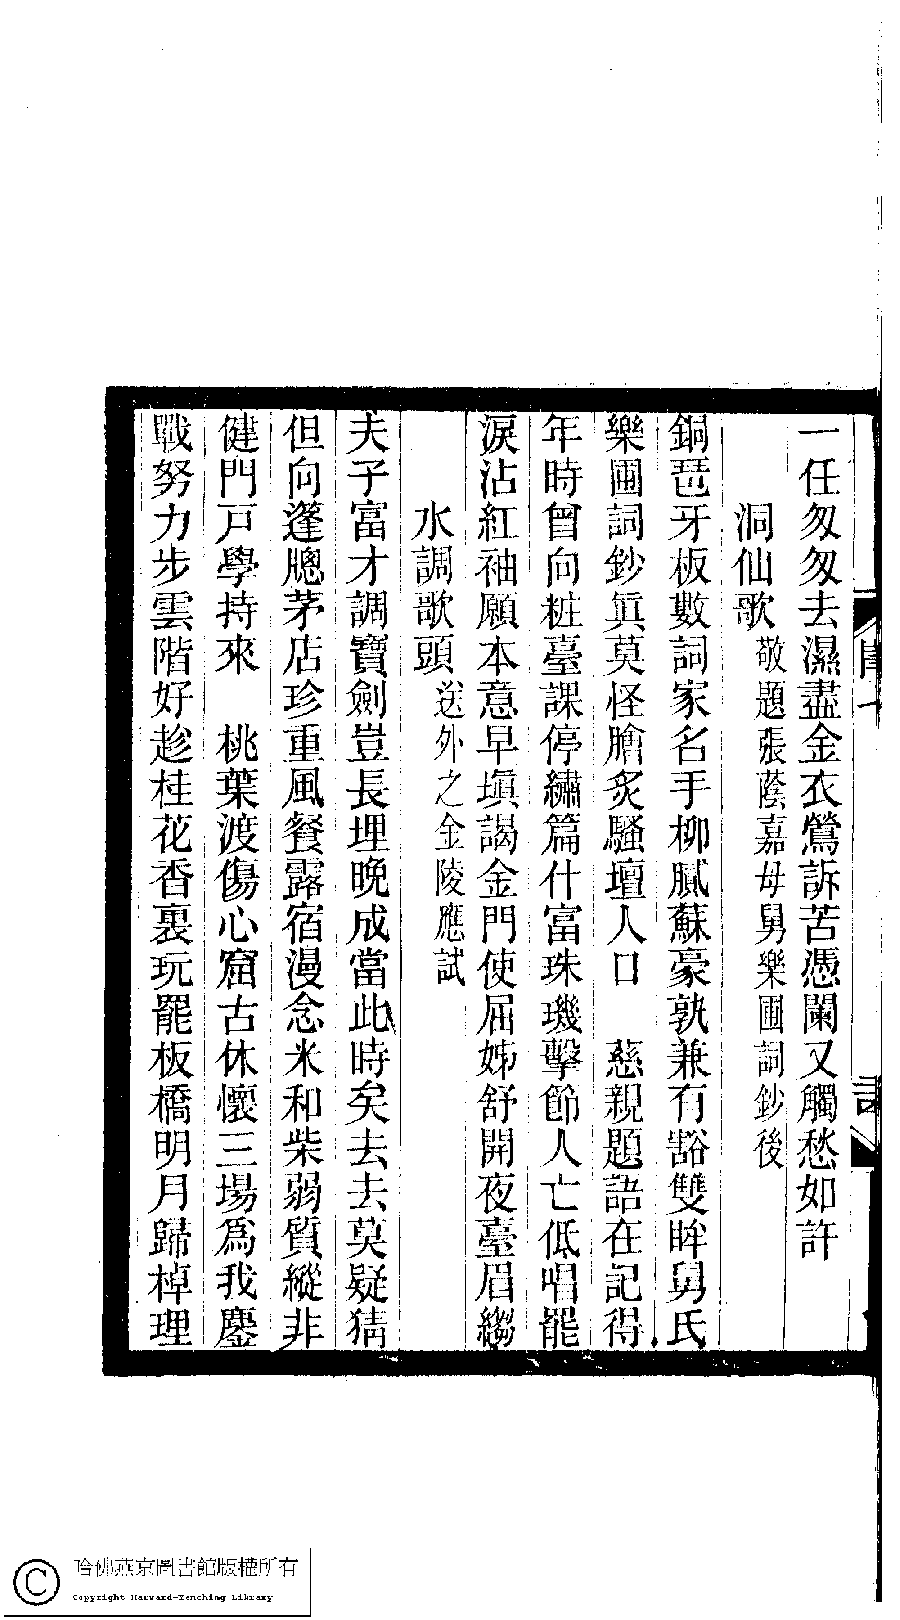 一任匆匆去濕盡金衣鶯訴苦憑闌又觸愁如許
洞仙歌 敬題張蔭嘉母舅樂圃詞鈔後
銅琶牙板數詞家名手柳膩蘇豪孰兼有豁雙眸舅氏
樂圃詞鈔眞莫怪膾炙騷壇人口　慈親題語在記得
年時曾向粧臺課停繡篇什富珠璣擊節人亡低唱罷
淚沾紅袖願本意早塡謁金門使屈姊舒開夜臺眉縐
水調歌頭 送外之金陵應試
夫子富才調寶劍豈長埋晩成當此時矣去去莫疑猜
但向蓬牕茅店珍重風餐露宿漫念米和柴弱質縱非
健門戸學持來　桃葉渡傷心窟古休懷三場爲我鏖
戰努力步雲階好趁桂花香裏玩罷板橋明月歸棹理
哈佛燕京圖書館版權所有
Copyright Harvard-Yenching Library